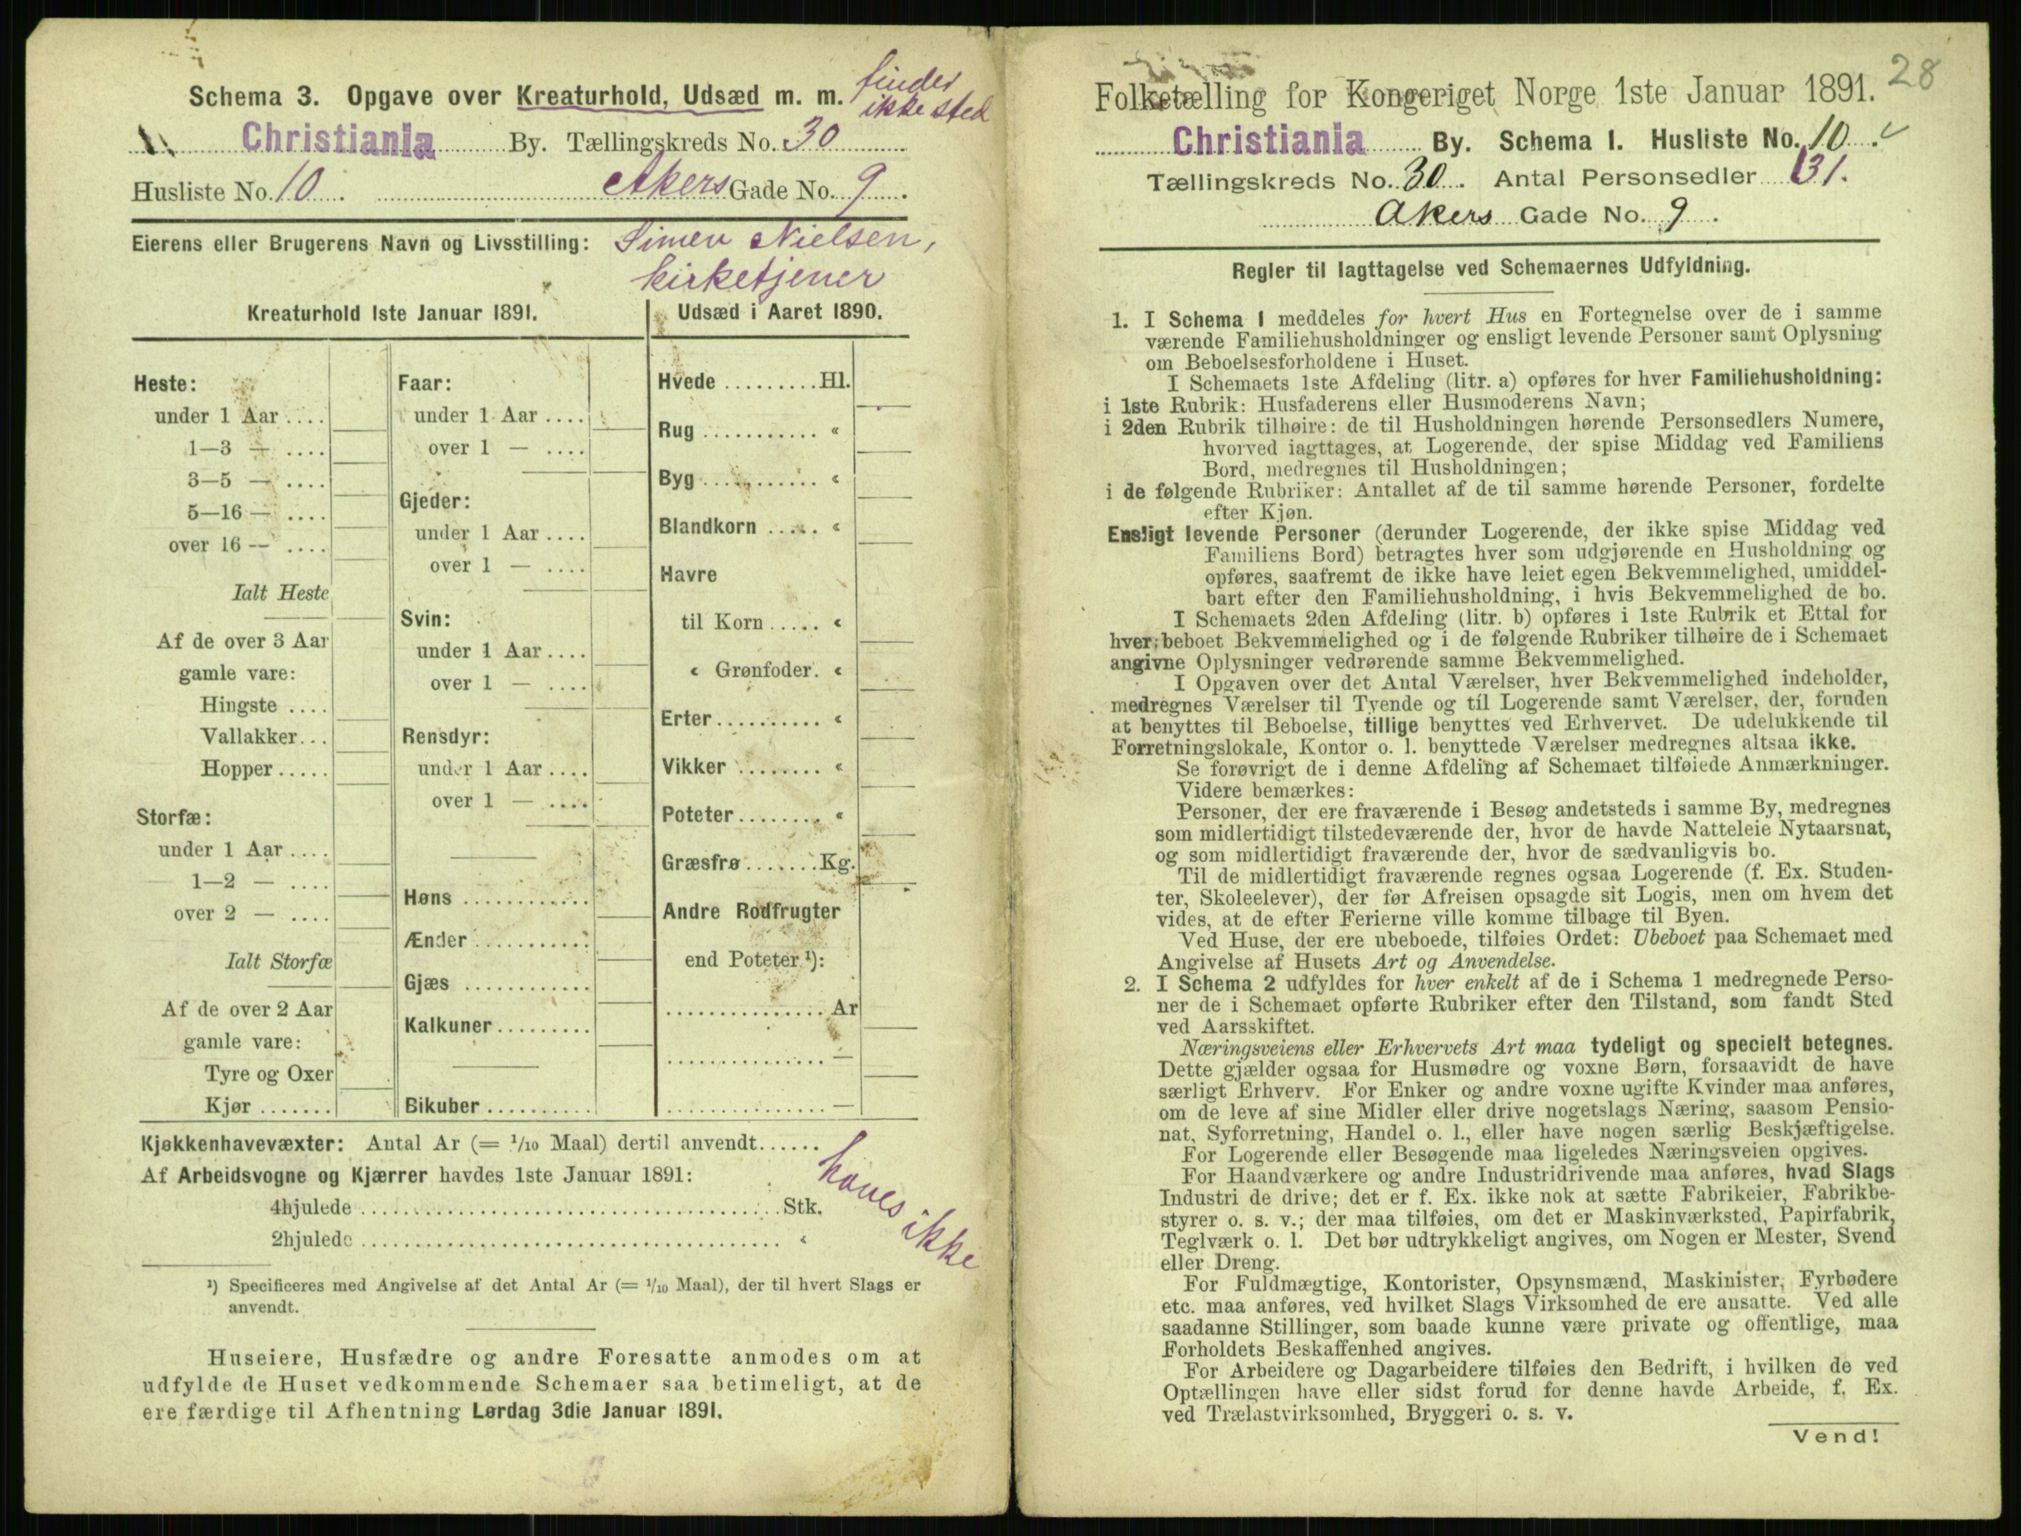 Schema 3. Opgave over Kreaturhold, Udsæd m. m. finder
ikke sted
Christiania By. Tællingskreds No. 30
Husliste No. 10 Akers Gade No. 9.
Eierens eller Brugerens Navn og Livsstilling: Simen Nielsen,
kirketjener
Kreaturhold 1ste Januar 1891.
Udsæd i Aaret 1890.
Heste:
under 1 Aar ....
1—3 — ....
3—5 — ....
5—16 — ....
over 16 — ....
Ialt Heste
Af de over 3 Aar
gamle vare:
Hingste ....
Vallakker...
Hopper.....
Storfæ:
under 1 Aar ....
1—2 — ....
over 2 — ....
Ialt Storfæ
Af de over 2 Aar
gamle vare:
Tyre og Oxer
Kjør .......
Faar:
under 1 Aar ....
over 1 — ....
Gjeder:
under 1 Aar ....
over 1 — ....
Svin:
under 1 Aar ....
over 1 — ....
Rensdyr:
under 1 Aar ....
over 1 — ....
Høns ............
Ænder ...........
Gjæs ............
Kalkuner.........
Bikuber..........
Hvede .........Hl.
Rug ........... «
Byg ........... «
Blandkorn ..... «
Havre
til Korn ..... «
« Grønfoder. «
Erter.......... «
Vikker ........ «
Poteter........ «
Græsfrø.......Kg.
Andre Rodfrugter
end Poteter ¹):
...............Ar
...............—
...............—
Kjøkkenhavevæxter: Antal Ar (= 1/10 Maal) dertil anvendt......
Af Arbeidsvogne og Kjærrer havdes 1ste Januar 1891:
4hjulede ........................................Stk.
2hjulede ........................................ «
haves ikke
¹) Specificeres med Angivelse af det Antal Ar (= 1/10 Maal), der til hvert Slags er
anvendt.
Huseiere, Husfædre og andre Foresatte anmodes om at
udfylde de Huset vedkommende Schemaer saa betimeligt, at de
ere færdige til Afhentning Lørdag 3die Januar 1891.
28
Folketælling for Kongeriget Norge 1ste Januar 1891.
Christiania By. Schema I. Husliste No. 10.
Tællingskreds No. 30. Antal Personsedler 31.
Akers Gade No. 9.
Regler til Iagttagelse ved Schemaernes Udfyldning.
1. I Schema 1 meddeles for hvert Hus en Fortegnelse over de i samme
værende Familiehusholdninger og ensligt levende Personer samt Oplysning
om Beboelsesforholdene i Huset.
I Schemaets 1ste Afdeling (litr. a) opføres for hver Familiehusholdning:
i 1ste Rubrik: Husfaderens eller Husmoderens Navn;
i 2den Rubrik tilhøire: de til Husholdningen hørende Personsedlers Numere,
hvorved iagttages, at Logerende, der spise Middag ved Familiens
Bord, medregnes til Husholdningen;
i de følgende Rubriker: Antallet af de til samme hørende Personer, fordelte
efter Kjøn.
Ensligt levende Personer (derunder Logerende, der ikke spise Middag ved
Familiens Bord) betragtes hver som udgjørende en Husholdning og
opføres, saafremt de ikke have leiet egen Bekvemmelighed, umiddel-
bart efter den Familiehusholdning, i hvis Bekvemmelighed de bo.
I Schemaets 2den Afdeling (litr. b) opføres i 1ste Rubrik et Ettal for
hver beboet Bekvemmelighed og i de følgende Rubriker tilhøire de i Schemaet
angivne Oplysninger vedrørende samme Bekvemmelighed.
I Opgaven over det Antal Værelser, hver Bekvemmelighed indeholder,
medregnes Værelser til Tyende og til Logerende samt Værelser, der, foruden
at benyttes til Beboelse, tillige benyttes ved Erhvervet. De udelukkende til
Forretningslokale, Kontor o. l. benyttede Værelser medregnes altsaa ikke.
Se forøvrigt de i denne Afdeling af Schemaet tilføiede Anmærkninger.
Videre bemærkes:
Personer, der ere fraværende i Besøg andetsteds i samme By, medregnes
som midlertidigt tilstedeværende der, hvor de havde Natteleie Nytaarsnat,
og som midlertidigt fraværende der, hvor de sædvanligvis bo.
Til de midlertidigt fraværende regnes ogsaa Logerende (f. Ex. Studen-
ter, Skoleelever), der før Afreisen opsagde sit Logis, men om hvem det
vides, at de efter Ferierne ville komme tilbage til Byen.
Ved Huse, der ere ubeboede, tilføies Ordet: Ubeboet paa Schemaet med
Angivelse af Husets Art og Anvendelse.
2. I Schema 2 udfyldes for hver enkelt af de i Schema 1 medregnede Perso-
ner de i Schemaet opførte Rubriker efter den Tilstand, som fandt Sted
ved Aarsskiftet.
Næringsveiens eller Erhvervets Art maa tydeligt og specielt betegnes.
Dette gjælder ogsaa for Husmødre og voxne Børn, forsaavidt de have
særligt Erhverv. For Enker og andre voxne ugifte Kvinder maa anføres,
om de leve af sine Midler eller drive nogetslags Næring, saasom Pensio-
nat, Syforretning, Handel o. l., eller have nogen særlig Beskjæftigelse.
For Logerende eller Besøgende maa ligeledes Næringsveien opgives.
For Haandværkere og andre Industridrivende maa anføres, hvad Slags
Industri de drive; det er f. Ex. ikke nok at sætte Fabrikeier, Fabrikbe-
styrer o. s. v.; der maa tilføies, om det er Maskinværksted, Papirfabrik,
Teglværk o. l. Det bør udtrykkeligt angives, om Nogen er Mester, Svend
eller Dreng.
For Fuldmægtige, Kontorister, Opsynsmænd, Maskinister, Fyrbødere
etc. maa anføres, ved hvilket Slags Virksomhed de ere ansatte. Ved alle
saadanne Stillinger, som baade kunne være private og offentlige, maa
Forholdets Beskaffenhed angives.
For Arbeidere og Dagarbeidere tilføies den Bedrift, i hvilken de ved
Optællingen have eller sidst forud for denne havde Arbeide, f. Ex.
ved Trælastvirksomhed, Bryggeri o. s. v.
Vend!